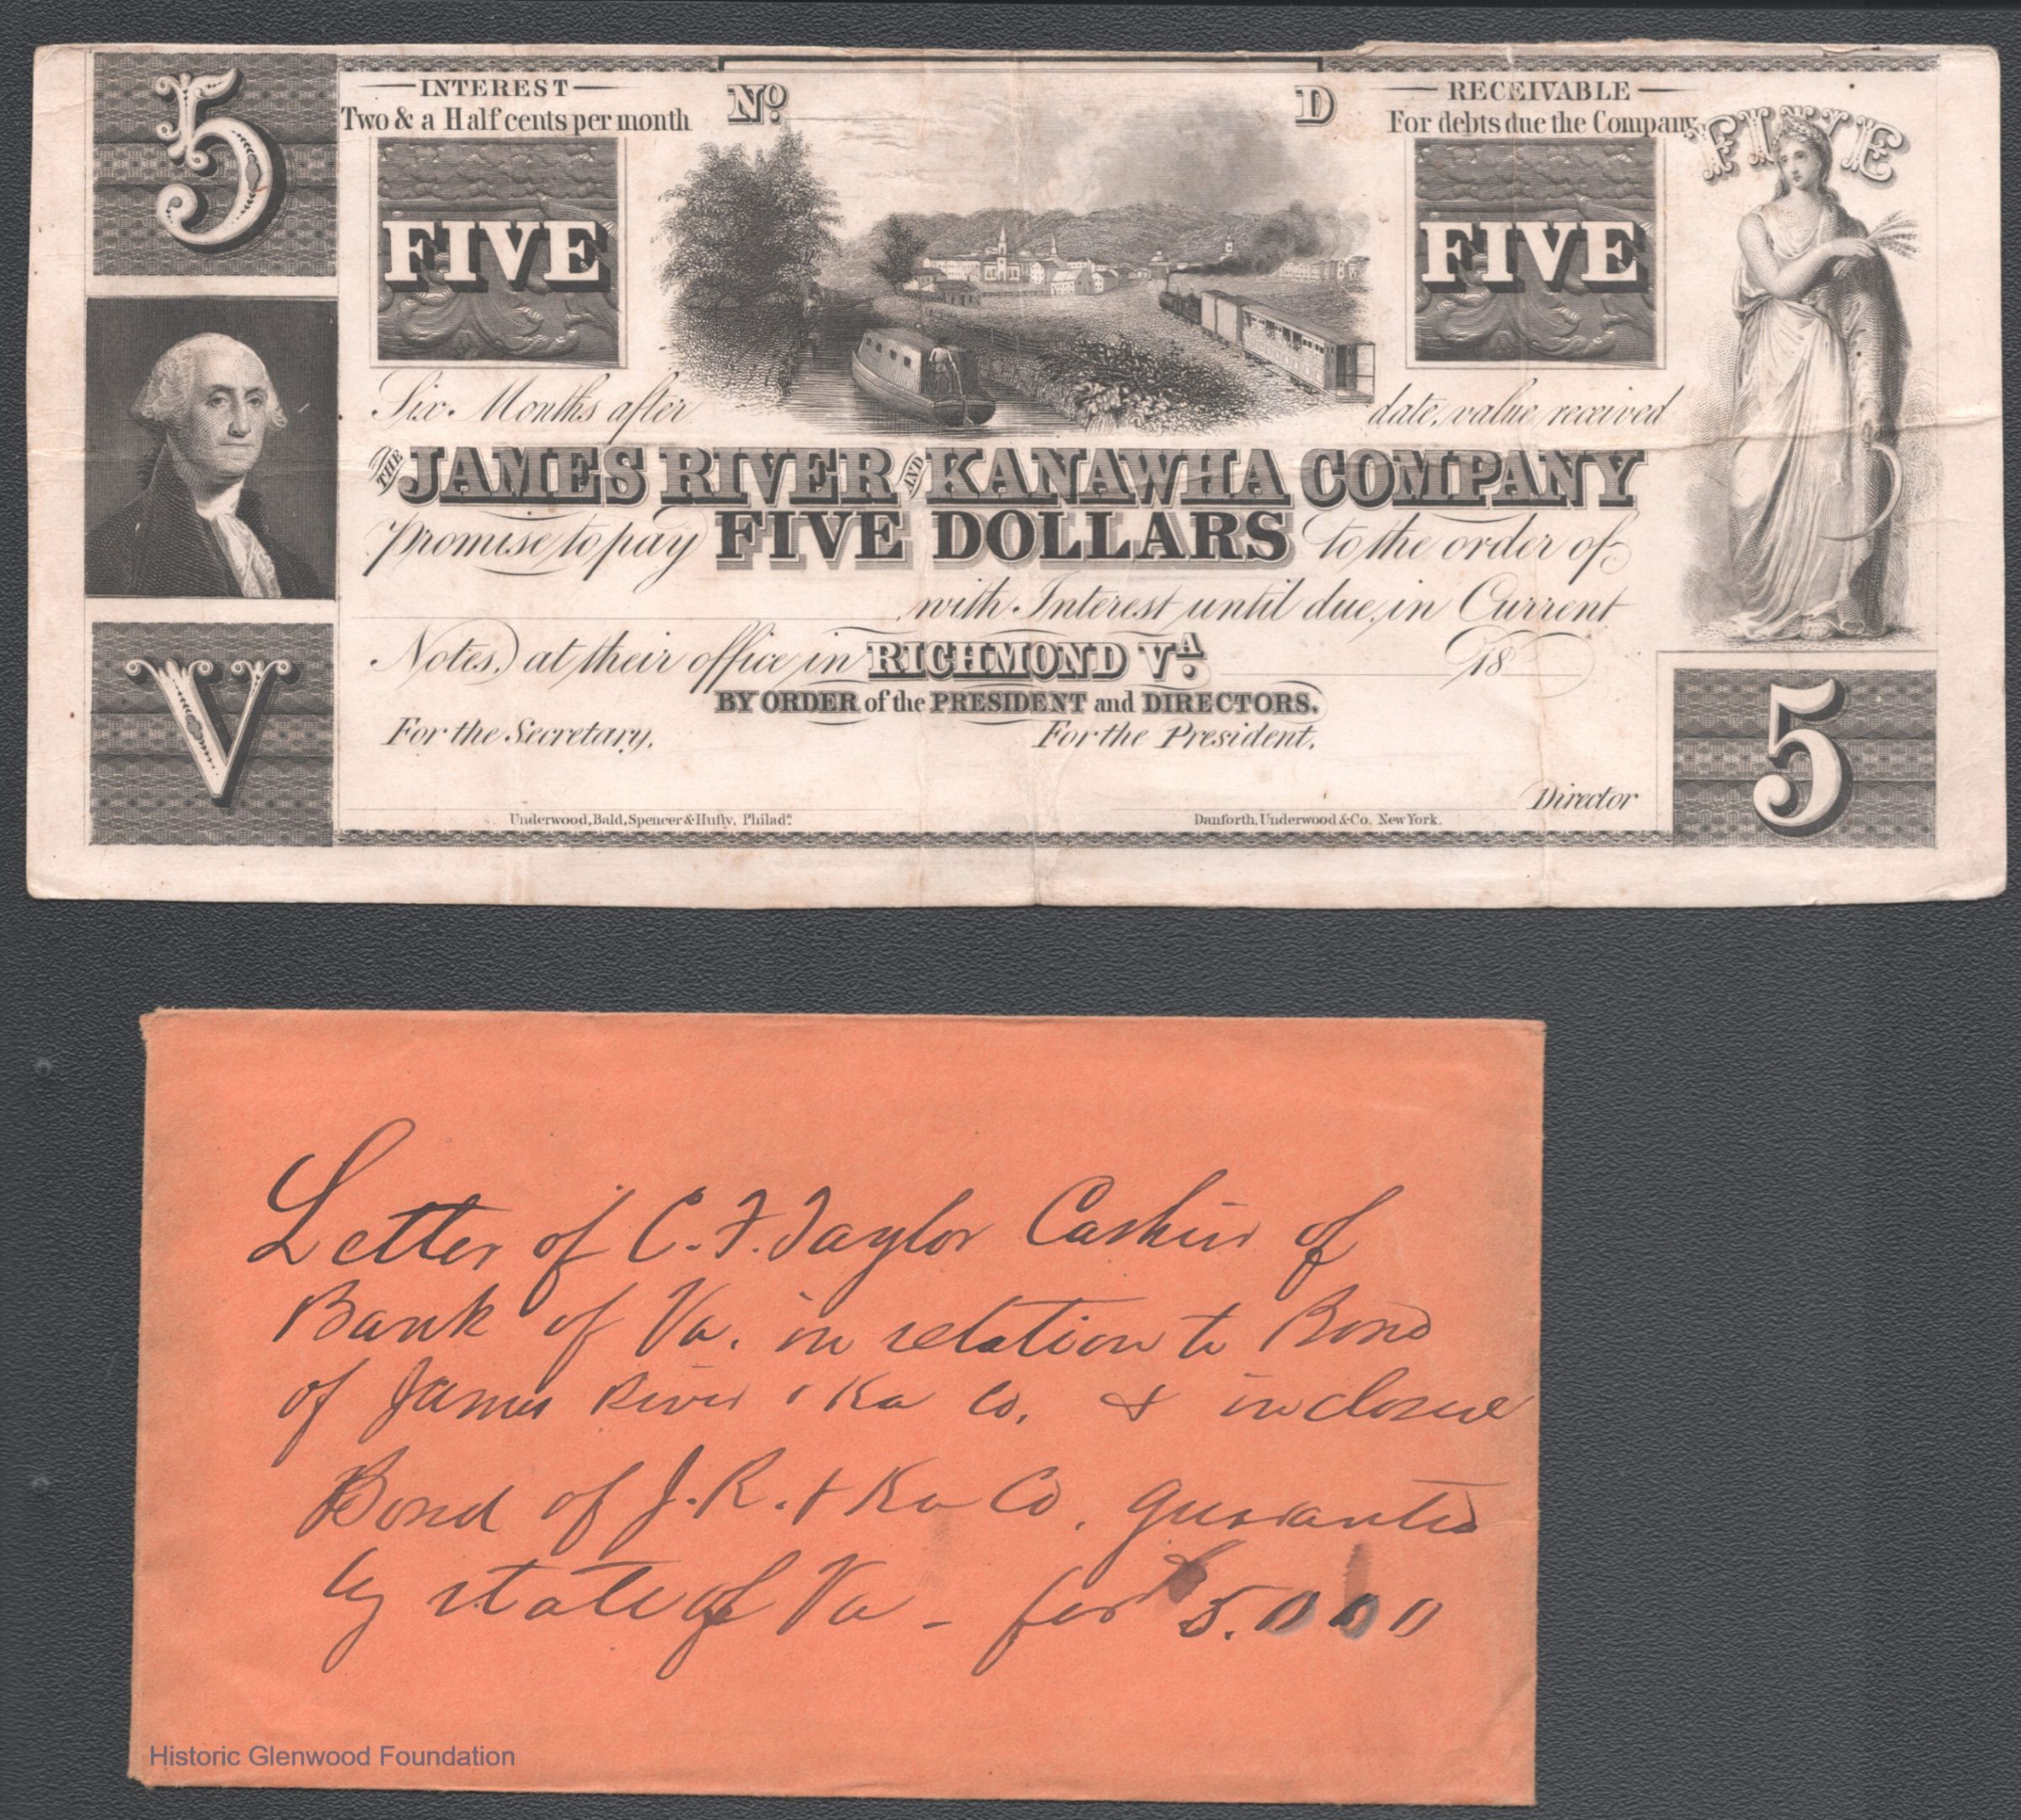 5
INTEREST
Two & a Half cents per month
Nº
D
RECEIVABLE
For debts due the Company
FIVE
FIVE
FIVE
Six Months after
date, value received
THE JAMES RIVER AND KANAWHA COMPANY
Promise to pay FIVE DOLLARS to the order of
with Interest until due, in Current
Notes, at their office in RICHMOND VA. 18
BY ORDER of the PRESIDENT and DIRECTORS.
For the Secretary, For the President,
V
5
Director
Underwood, Bald, Spencer & Hufty, Philadª.
Danforth, Underwood & Co. New York.
Letter of C. F. Taylor Cashier of
Bank of Va. in relation to Bond
of James River & Ka Co. & inclosed
Bond of J. R. & Ka Co. guarantied
by state of Va - for $5.000
Historic Glenwood Foundation